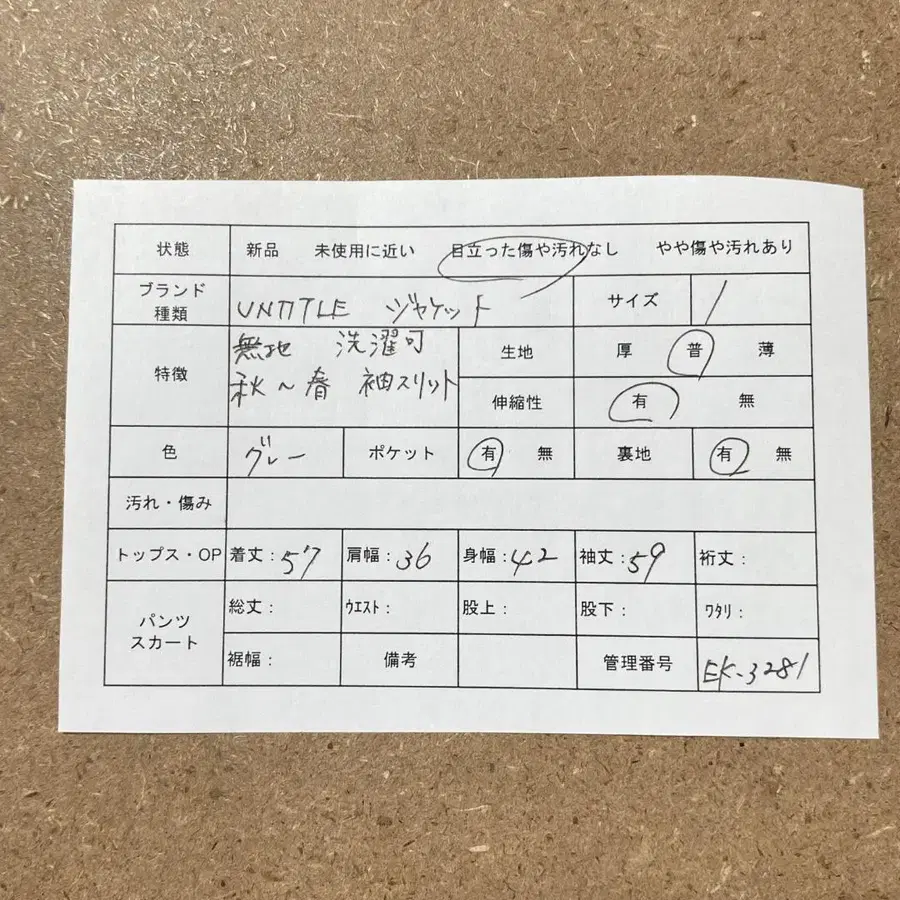 状態 新品 未使用に近い 目立った傷や汚れなし やや傷や汚れあり
ブランド 種類 UNTITLE ジャケット サイズ /
特徴 無地 洗濯可 生地 厚 普 薄
秋~春 袖スリット 伸縮性 有 無
色 グレー ポケット 有 無 裏地 有 無
汚れ・傷み
トップス・OP 着丈:57 肩幅:36 身幅:42 袖丈:59 裄丈:
パンツ スカート 総丈: ウエスト: 股上: 股下: ワタリ:
裾幅: 備考 管理番号 EK-3281